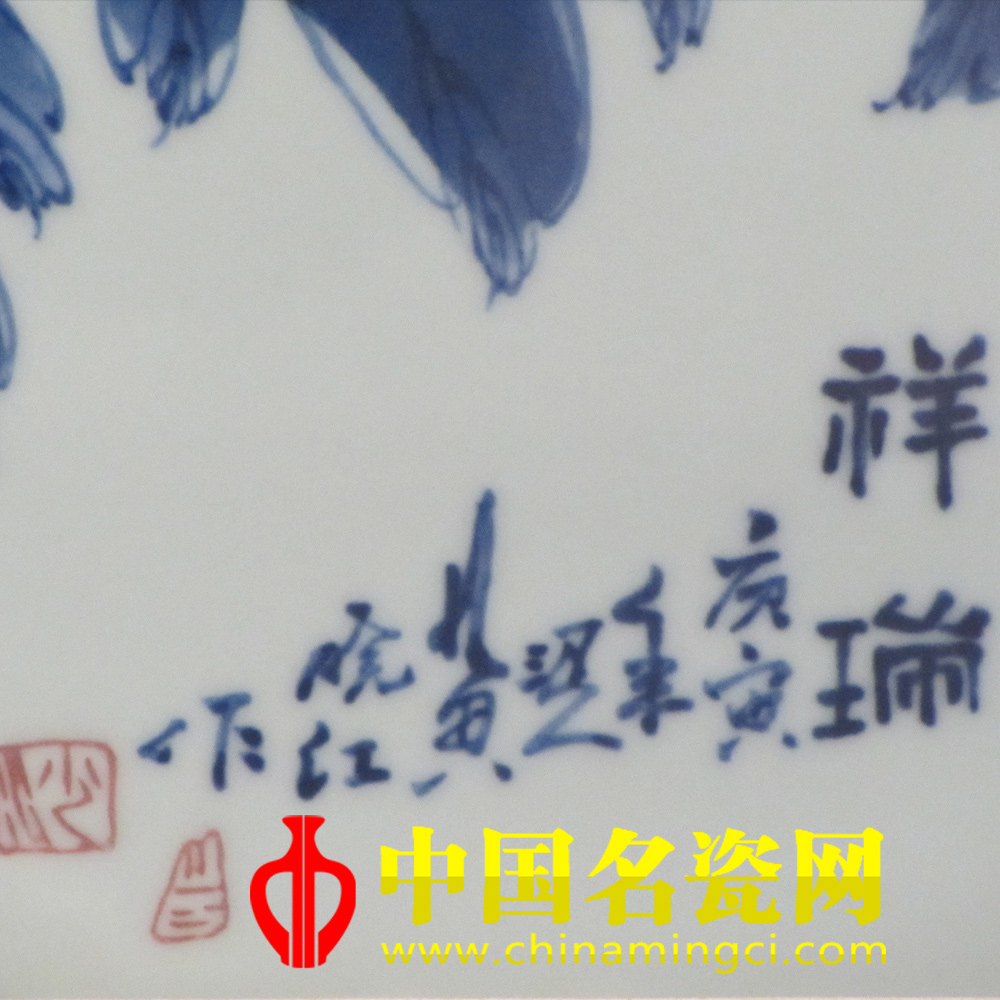 祥瑞
庚寅
年
黄
晓红
作
中国名瓷网
www.chinamingci.com